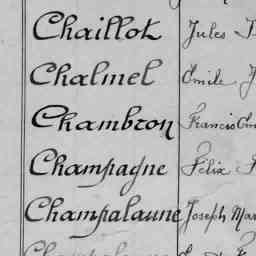 Chaillot Jules
Chalmel Emile
Chambron Francis
Champagne Félix
Champalaune Joseph